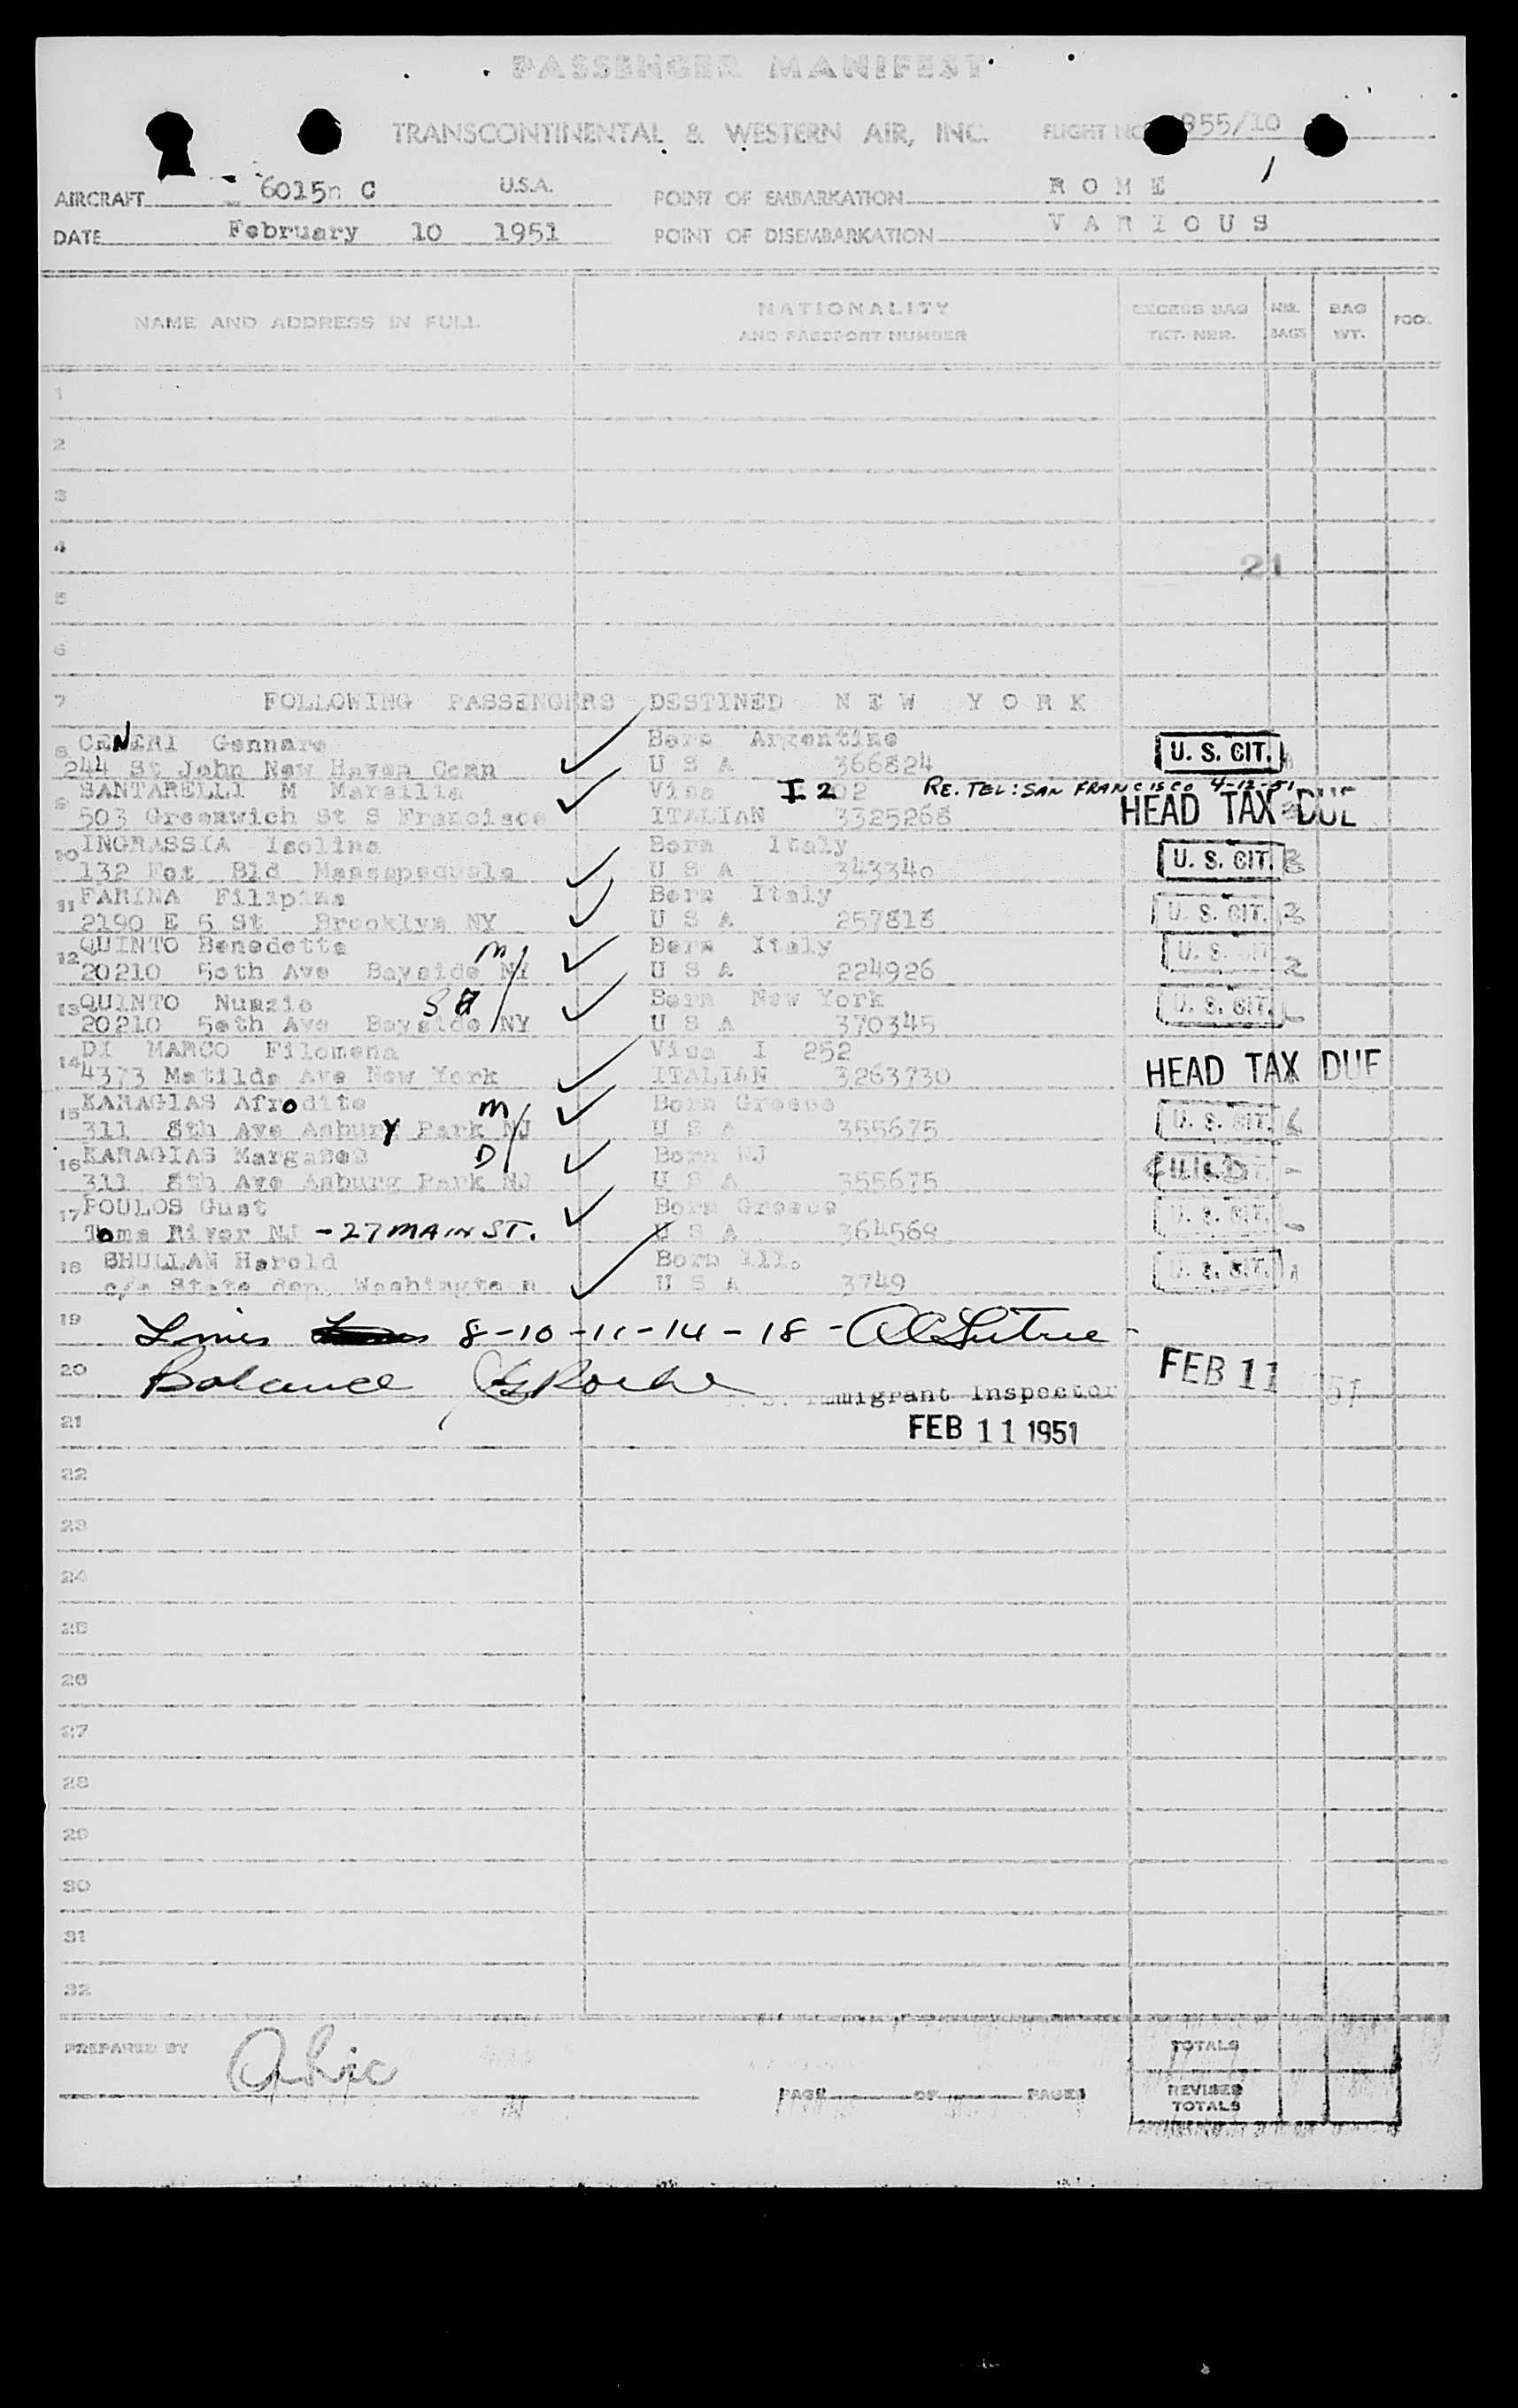 PASSENGER MANIFEST
TRANSCONTINENTAL & WESTERN AIR, INC. FLIGHT NO 855/10
AIRCRAFT 6015n C U.S.A. POINT OF EMBARKATION R O M E
DATE February 10 1951 POINT OF DISEMBARKATION V A R I O U S
NAME AND ADDRESS IN FULL NATIONALITY AND PASSPORT NUMBER EXCESS BAG TKT. NBR. NBR. BAGS BAG WT.
1
2
3
4
21
5
6
7 FOLLOWING PASSENGERS DESTINED N E W Y O R K
8 CENERI Gennaro Born Argentine U. S. CIT.
244 St John New Haven Conn U S A 366824
9 SANTARELLI M Marsilia Visa I 2 02 RE. TEL: SAN FRANCISCO 4-12-51
503 Greenwich St S Francisco ITALIAN 3325268 HEAD TAX DUE
10 INGRASSIA Isolina Born Italy U. S. CIT.
132 Bld U S A 343340
11 FARINA Filipina Born Italy U. S. CIT. 2
2190 E 5 St Brooklyn NY U S A 257818
12 QUINTO Benedetta M Born Italy U. S. CIT
20210 50th Ave Bayside NY U S A 224926 2
13 QUINTO Nunzio S Born New York U. S. CIT.
20210 50th Ave Bayside NY U S A 370345
14 DI MARCO Filomena Visa I 252
4373 Matilda Ave New York ITALIAN 3263730 HEAD TAX DUE
15 KARAGIAS Afrodite M Born Greece U. S. CIT.
311 8th Ave Asbury Park NJ U S A 355675
16 KARAGIAS D Born NJ
311 8th Ave Asburg Park NJ U S A 355675
17 POULOS Gust Born Greece U. S. CIT.
Toms River NJ - 27 MAIN ST. U S A 364569
18 SHULLAN Harold Born Ill. U. S. CIT.
c/o State dep. Washington U S A 3749
19 8-10-11-14-18-
20 Balance Immigrant Inspector FEB 11 1951
21 FEB 11 1951
22
23
24
25
26
27
28
29
30
31
32
PREPARED BY TOTALS
PAGE OF PAGES REVISED TOTALS